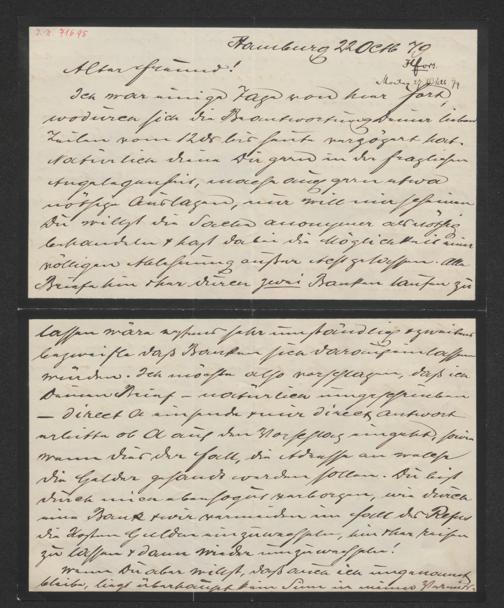 I.N. 71695
Hamburg 22 Octb 79
Alter Freund!
Ich war einige Tage von hier fort,
wodurch sich die Beantwortung deiner lieben
Zeilen vom 12 ds bis heute verzögert hat.
Natürlich diene Dir gern in der fraglichen
Angelegenheit, mache auch gern etwa
nöthige Auslagen, nur will mir scheinen
Du willst die Sache anonymer als nöthig
behandeln & hast dabei die Möglichkeit einer
völligen Ablehnung außer Acht gelassen. Alle
Briefe hin & her durch zwei Banken laufen zu
lassen wäre erstens sehr umständlich & zweitens
bezweifle daß Banken sich darauf einlassen
würden. Ich möchte also vorschlagen, daß ich
Deinen Brief – natürlich umgeschrieben
– direct an A einsende & mir direct Antwort
erbitte ob A auf den Vorschlag eingeht, sowie
wenn dies der Fall, die Adresse an welche
die Gelder gesandt werden sollen. Du bist
durch mich ebensogut verborgen, wie durch
eine Bank & wir vermeiden im Fall des Refus
die Kosten Gulden einzuwechseln, hin & her reisen
zu lassen & dann wieder umzuwechseln!
Wenn Du aber willst, daß auch ich ungenannt
bleibe, liegt überhaupt kein Sinn in meiner